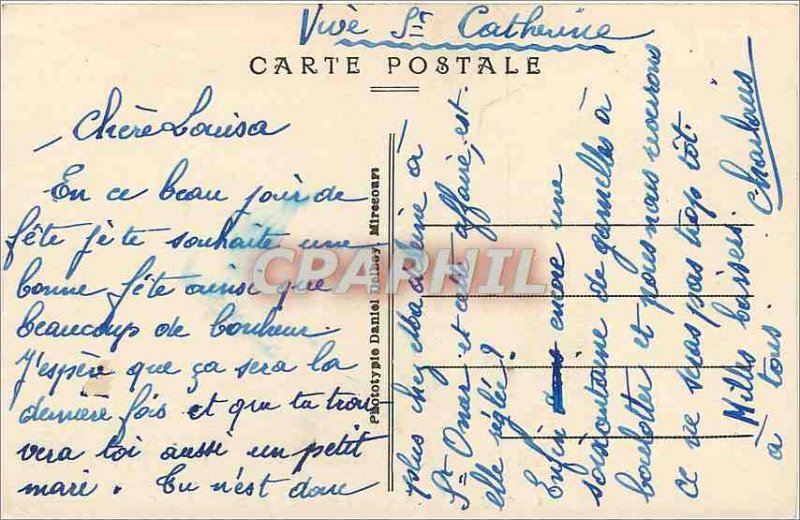 Vive Ste Catherine
CARTE POSTALE
Chère Louisa
En ce beau jour de
fête je te souhaite une
bonne fête ainsi que
beaucoup de bonheur.
J'espère que ça sera la
dernière fois et que tu trou-
vera toi aussi un petit
mari. Tu n'est donc
Phototypie Daniel Delbey, Mirecourt
CPAPHIL
plus chez Madeleine à
St Omer et cette affaire, est-
elle réglée?
Enfin encore une
soixantaine de gamelles à
boulotter et nous nous reverrons
ce ne seras pas trop tôt.
Milles baisers
à tous.
Charlouis